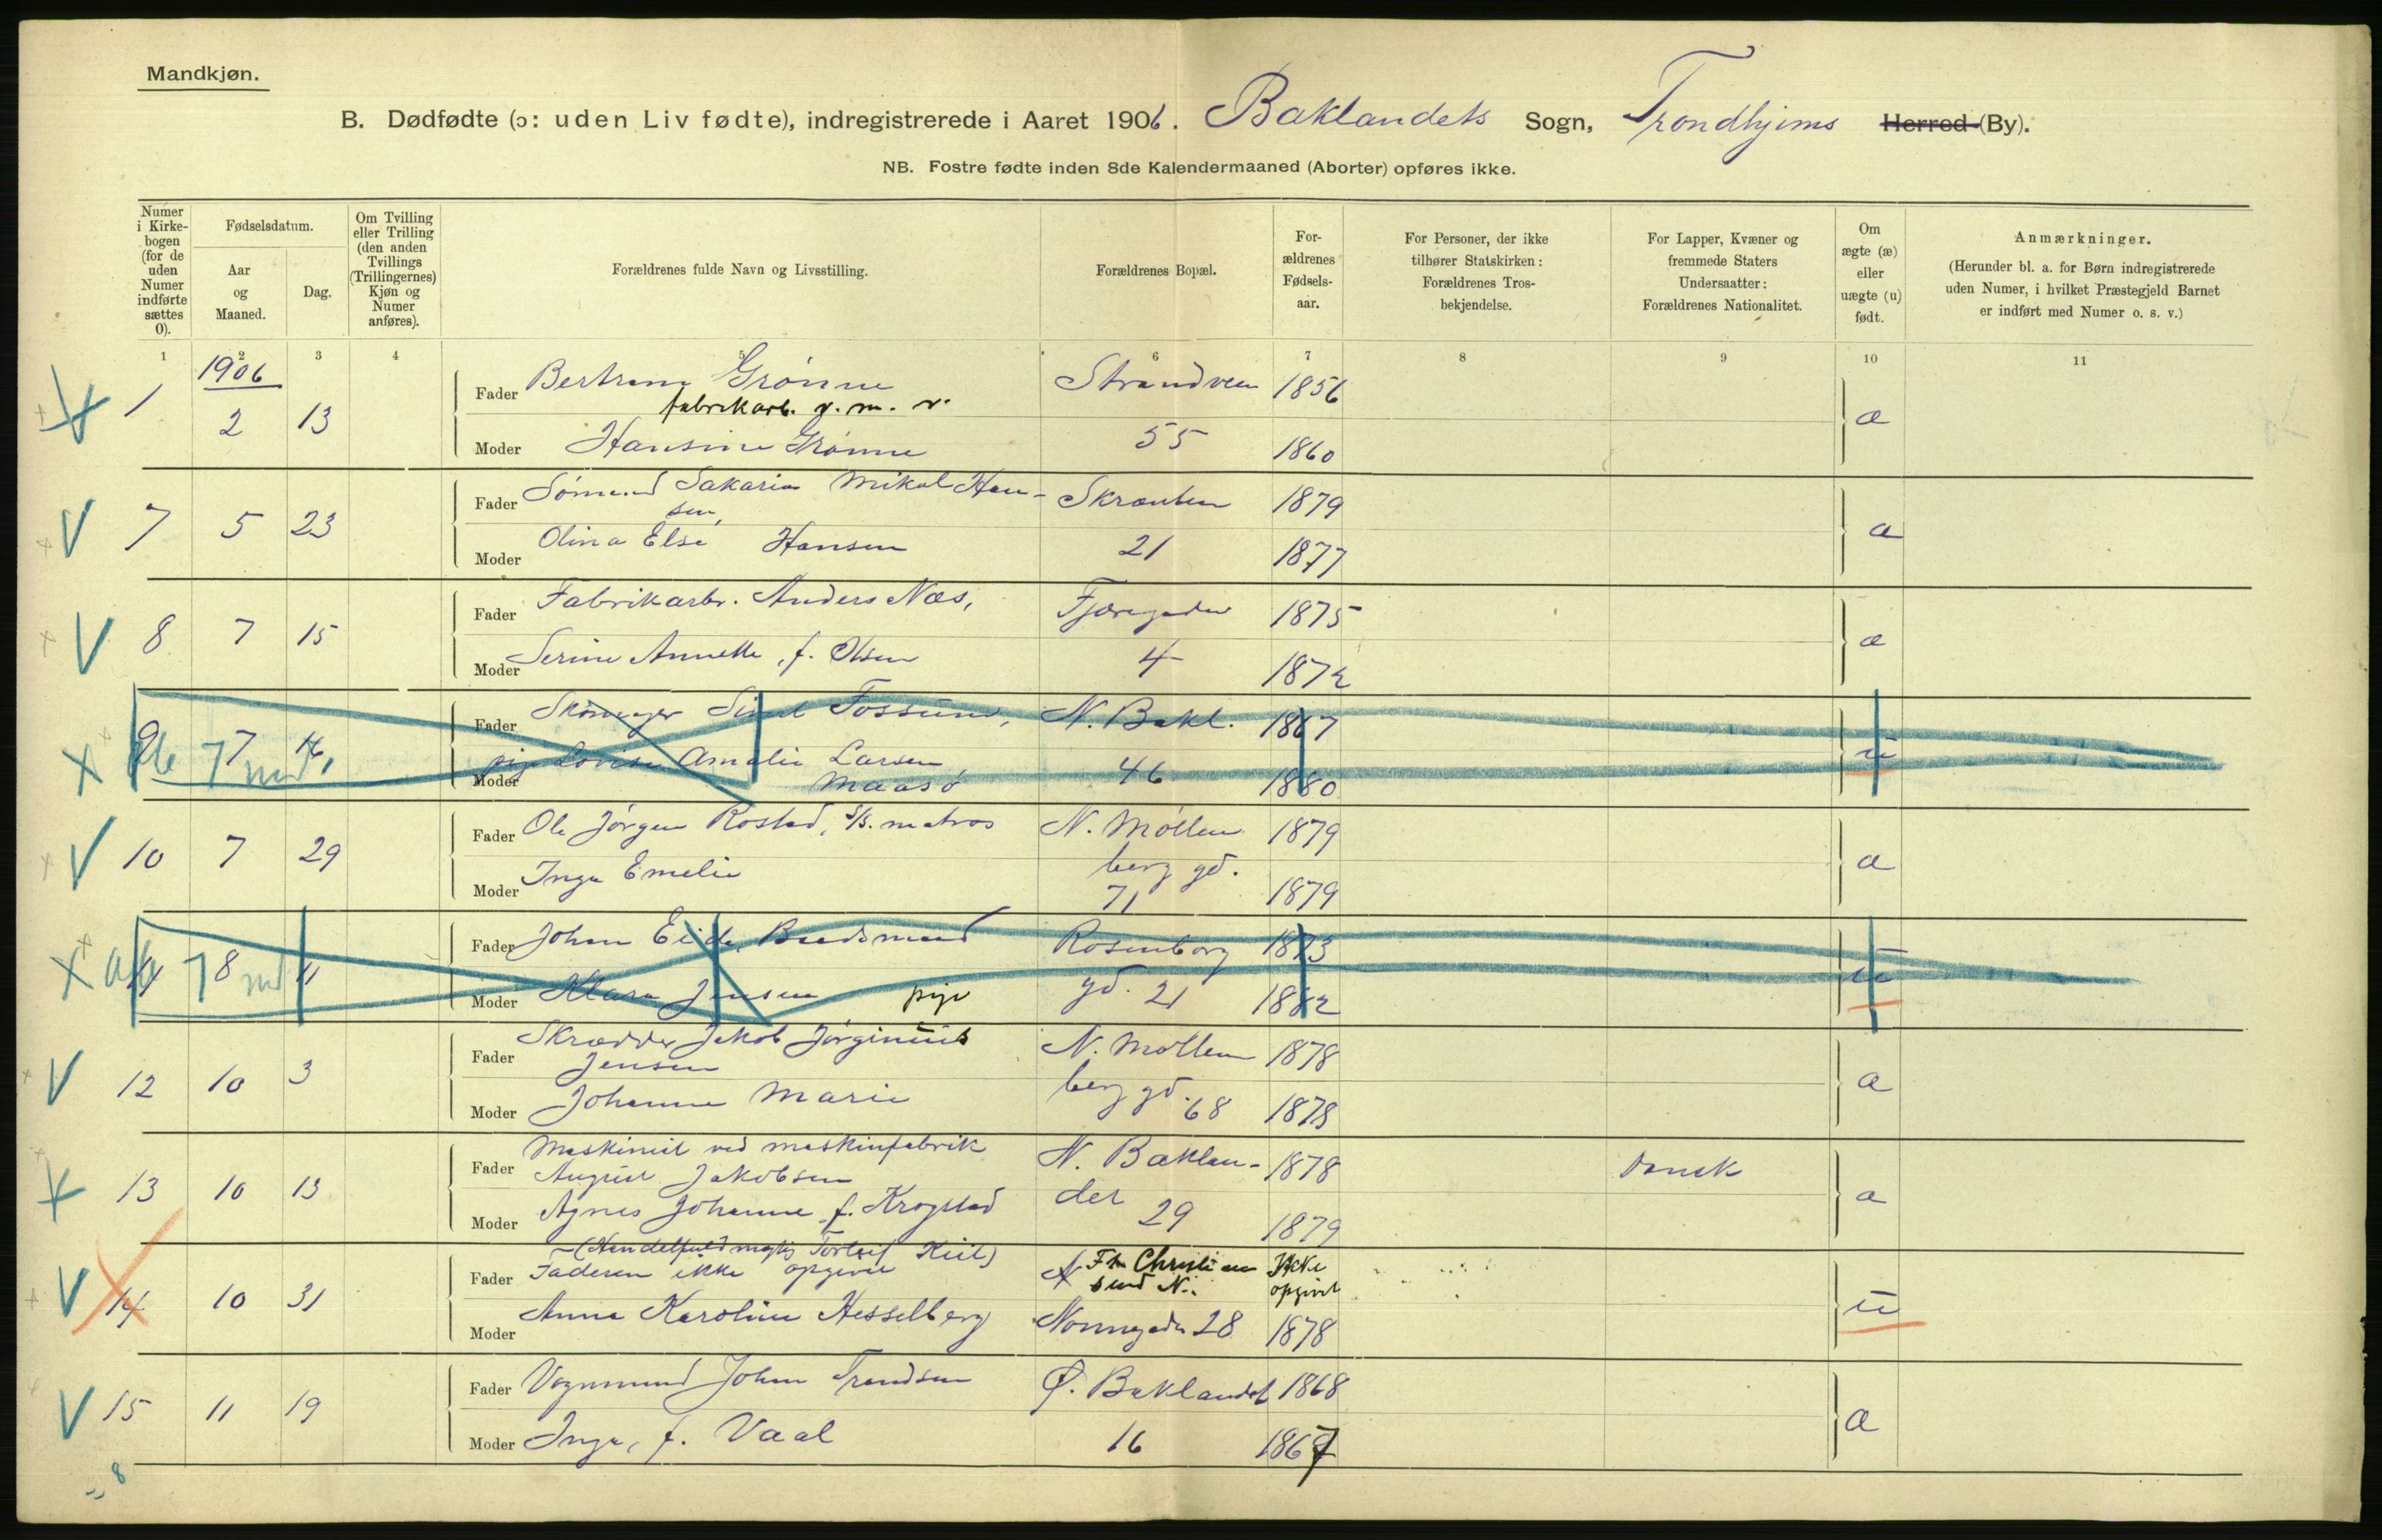 Mandkjøn.
B. Dødfødte (ɔ: uden Liv fødte), indregistrerede i Aaret 1906. Baklandets Sogn, Trondhjems Herred (By).
NB. Fostre fødte inden 8de Kalendermaaned (Aborter) opføres ikke.
Numer i Kirkebogen (for de uden Numer indførte sættes 0).
Fødselsdatum.
Aar og Maaned.
Dag.
Om Tvilling eller Trilling (den anden Tvillings (Trillingernes) Kjøn og Numer anføres).
Forældrenes fulde Navn og Livsstilling.
Forældrenes Bopæl.
For-ældrenes Fødsels-aar.
For Personer, der ikke tilhører Statskirken: Forældrenes Tros-bekjendelse.
For Lapper, Kvæner og fremmede Staters Undersaatter: Forældrenes Nationalitet.
Om ægte (æ) eller uægte (u) født.
Anmærkninger.
(Herunder bl. a. for Børn indregistrerede uden Numer, i hvilket Præstegjeld Barnet er indført med Numer o. s. v.)
1 2 3 4 5 6 7 8 9 10 11
1906
1 2 13 Fader Bertram Grønne Strandveien 1856 æ
fabrikarb. v. m. v.
Moder Hansine Grønne 55 1860
7 5 23 Fader Sømand Sakarias Mikal Han- Skranten 1879 æ
sen,
Moder Olina Else Hansen 21 1877
8 7 15 Fader Fabrikarbr. Anders Næs, Fjæregaden 1875 æ
Moder Serine Annette, f. Olsen 4 1872
9 7 16 Fader Fossum, N. Bakl. 1867 u
7 md
Moder pige Lovise Amalie Larsen 46 1880
Maasø
10 7 29 Fader Ole Jørgen Rostad, S/S. matros N. Møllen 1879 æ
berg gd.
Moder Inga Emelie 71 1879
11 8 11 Fader Johan Eide, Budsmand Rosenborg 1873 u
7 md
Moder Klara Jensen pige gd. 21 1882
12 10 3 Fader Skrædder Jakob Jørginius N. Møllen 1878 æ
Jensen
Moder Johanne Marie berg gd. 68 1878
13 10 13 Fader Maskinist ved maskinfabrik N. Baklan- 1878 Dansk æ
August Jakobsen det
Moder Agnes Johanne f. Krogstad 29 1879
14 10 31 (Handelsfuldmægtig Torleif Kiil)
Fader Faderen ikke opgivet Fra Christian Ikke u
sund N. opgivet
Moder Anna Karoline Hesselberg Nonnegaden 28 1878
15 11 19 Fader Vognmand Johan Trondsen Ø. Baklandet 1868 æ
Moder Inga, f. Vaal 16 1867
8